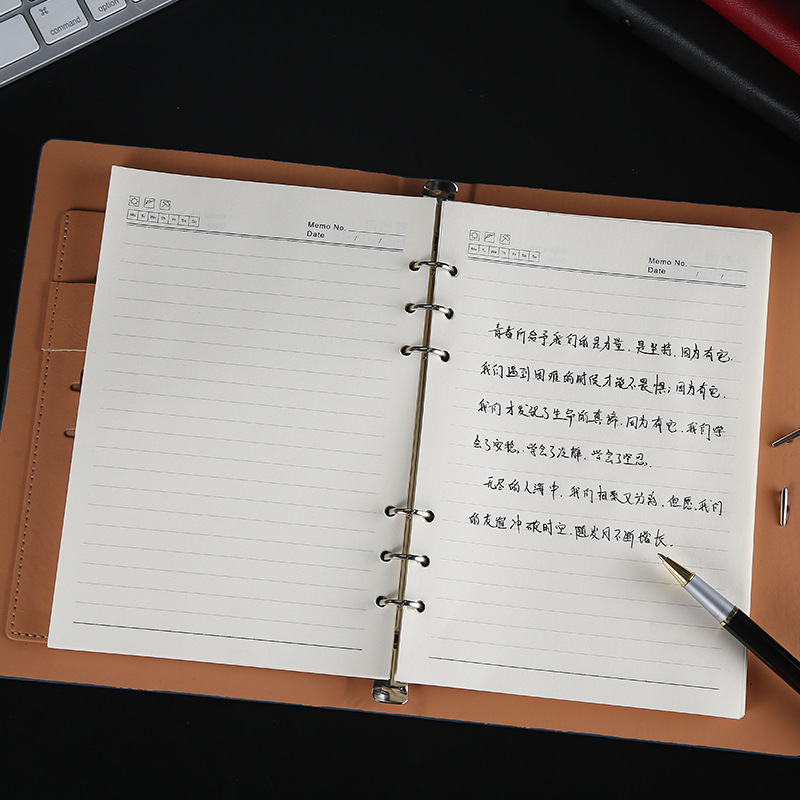 ⌘
command
option
Mo Tu We Th Fr Sa Su
Memo No.
Date / /
Mo Tu We Th Fr Sa Su
Memo No.
Date / /
青春所给予我们的是力量,是坚持,因为有它,
我们遇到困难的时候才能不畏惧;因为有它,
我们才发现了生命的真谛,因为有它,我们学
会了安稳,学会了冷静,学会了坚忍。
无尽的人海中,我们相聚又分离,但愿我们
的友谊冲破时空,随岁月不断增长。